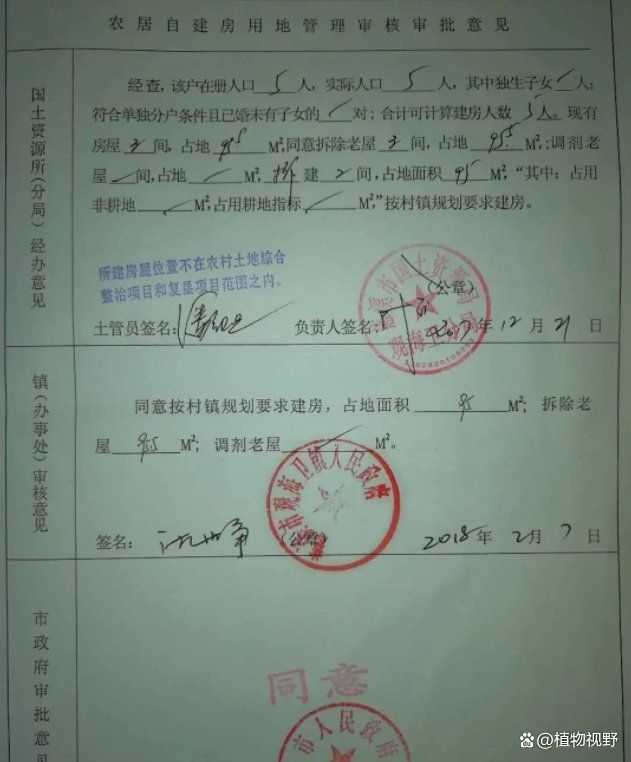 农居自建房用地管理审核审批意见
国土资源所(分局)经办意见
经查，该户在册人口 5 人，实际人口 5 人，其中独生子女 / 人；
符合单独分户条件且已婚未有子女的 / 对；合计可计算建房人数 5 人。现有
房屋 2 间，占地 95.5 M²,同意拆除老屋 2 间，占地 95.5 M²,;调剂老
屋 / 间,占地 / M²,拆建 2 间,占地面积 95 M²,“其中：占用
非耕地 / M²,占用耕地指标 / M²,”按村镇规划要求建房。
所建房屋位置不在农村土地综合
整治项目和复垦项目范围之内。
慈溪市国土资源局
观海卫
土管员签名： 负责人签名： (公章) 2017年12月21日
镇(办事处)审核意见
同意按村镇规划要求建房，占地面积 95 M²；拆除老
屋 95.5 M²；调剂老屋 / M²。
慈溪市观海卫镇人民政府
签名： (公章) 2018年2月7日
市政府审批意见
同意
市人民政府
@植物视野